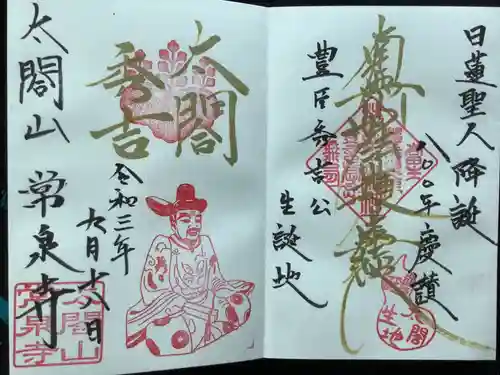 日蓮聖人降誕
八〇〇年慶讃
南無妙法蓮華経
豊臣秀吉公
生誕地
太閤
秀吉
令和三年
六月十八日
太閤山 常泉寺
太閤山
常泉寺